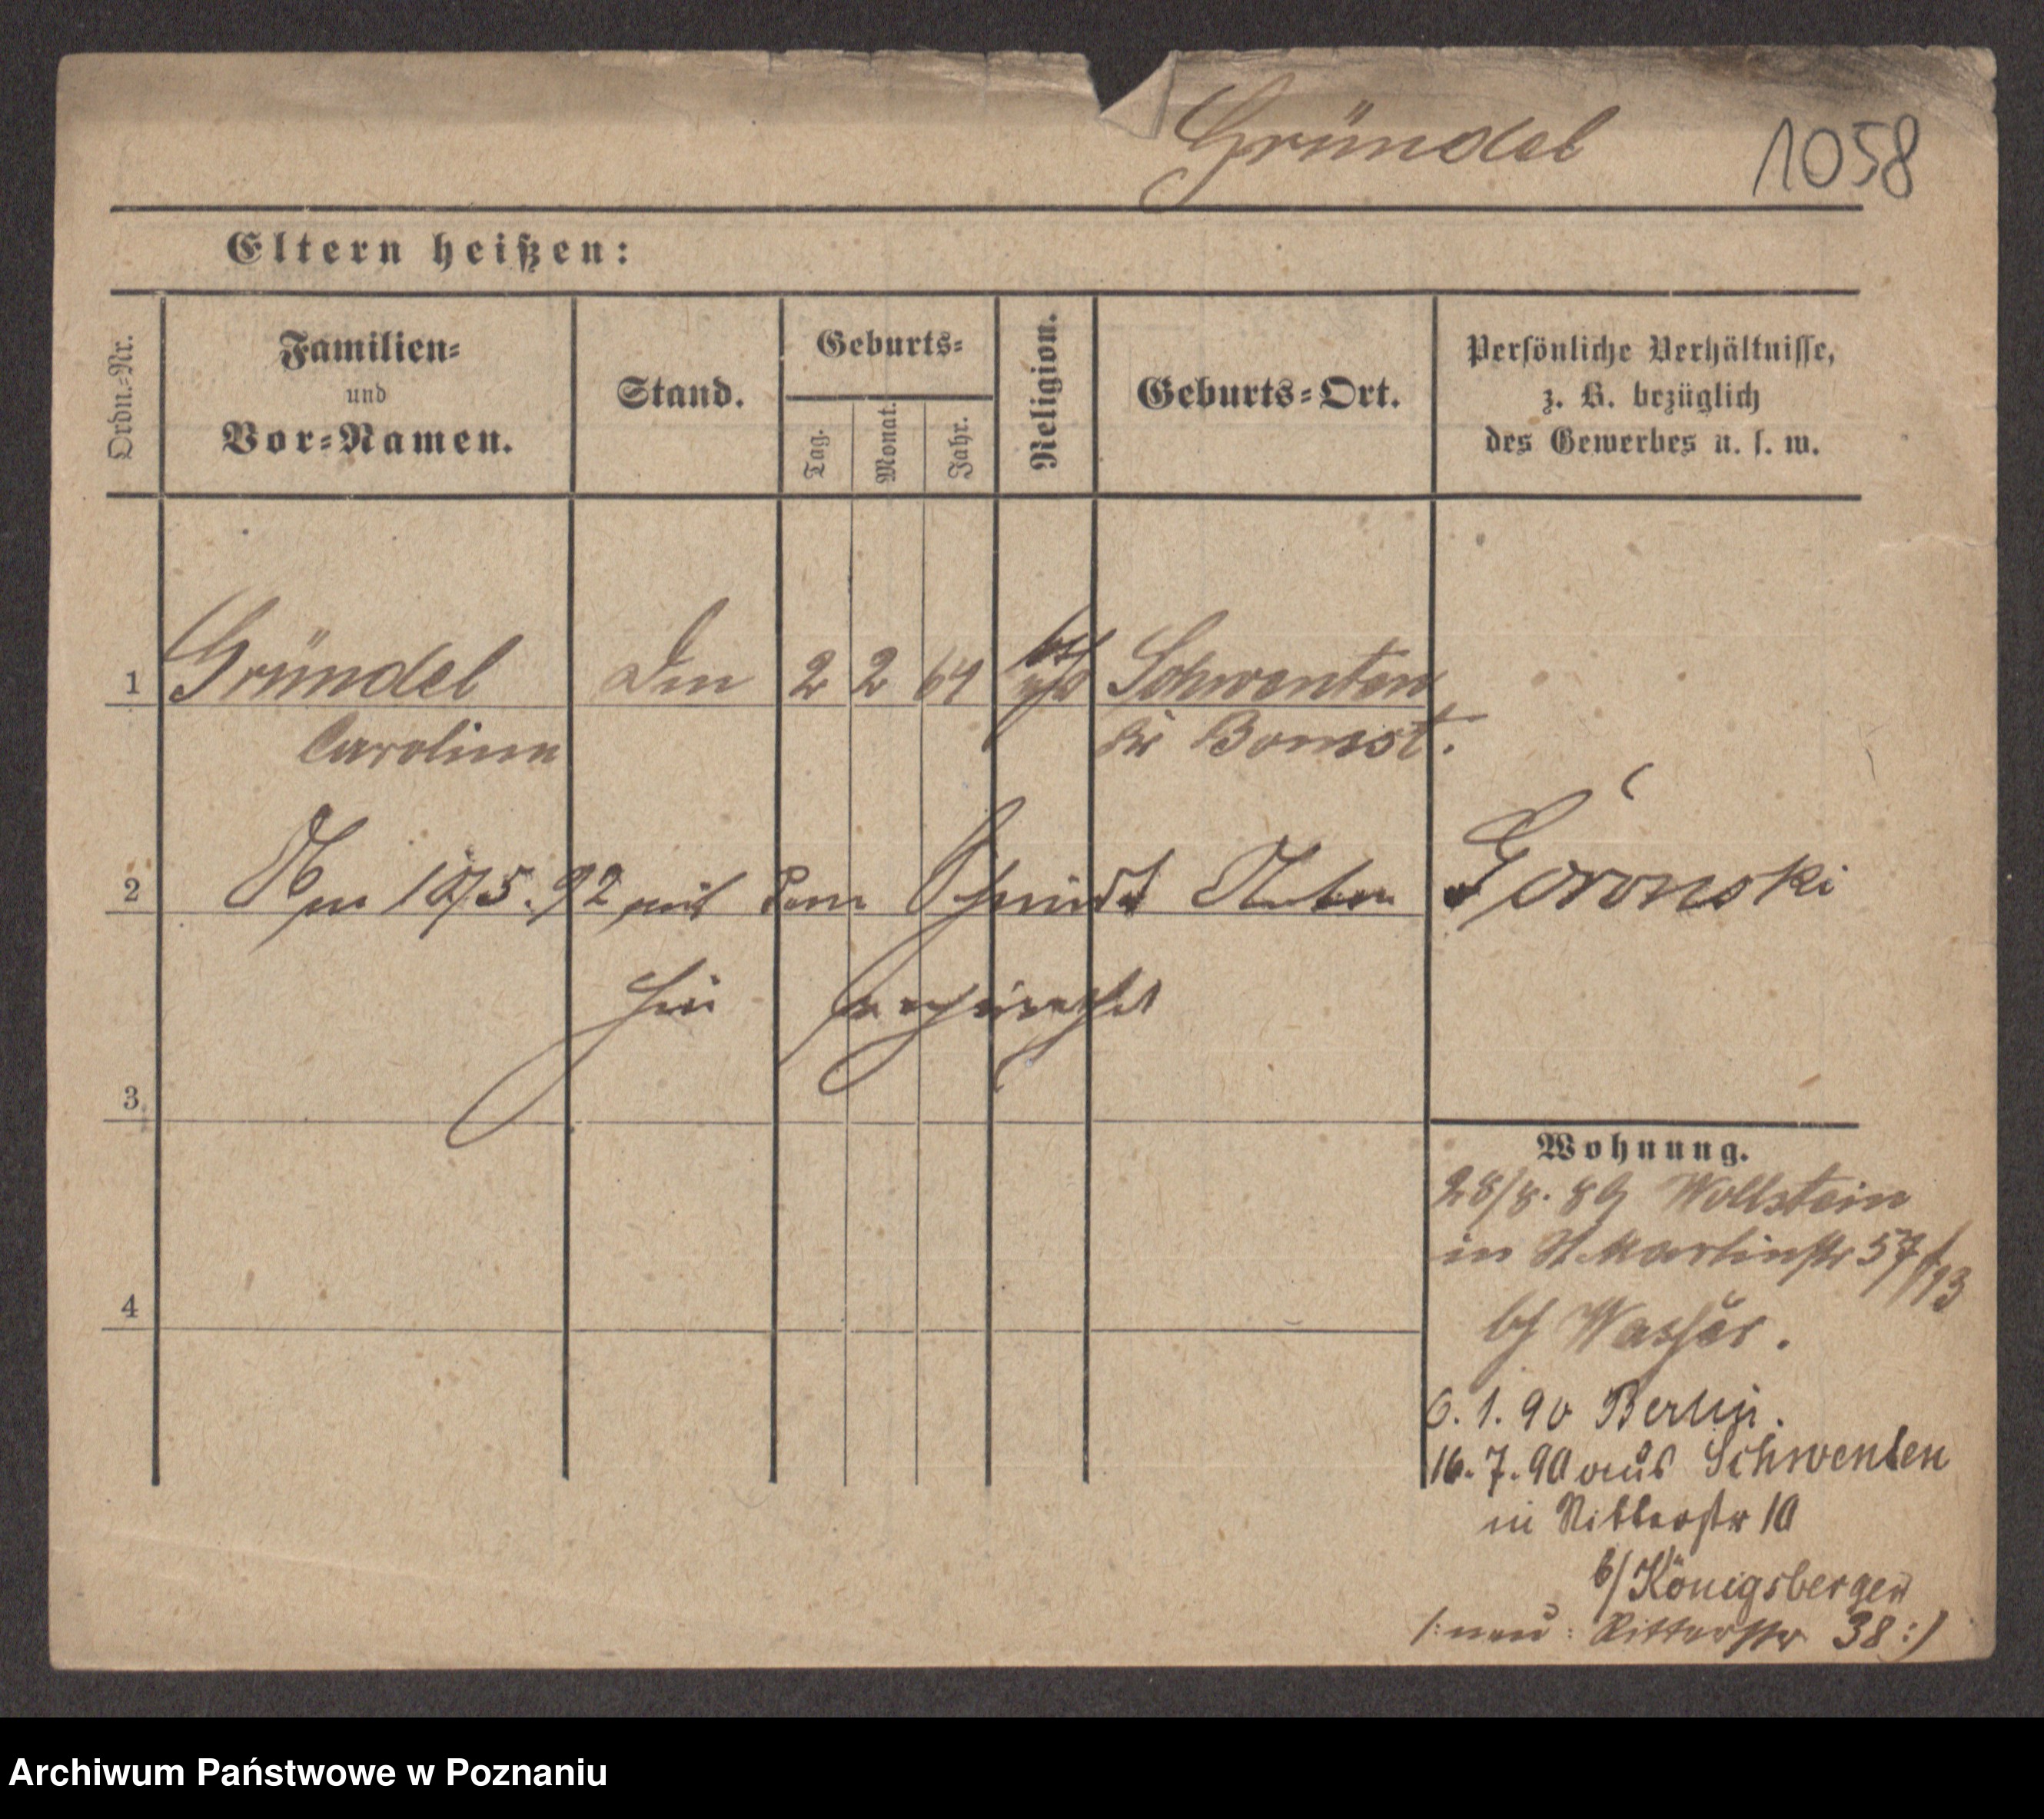 Gründel 1058
Eltern heißen:
Ordn.-Nr.
Familien-
und
Vor-Namen.
Stand.
Geburts-
Tag.
Monat.
Jahr.
Religion.
Geburts-Ort.
Persönliche Verhältnisse,
z. B. bezüglich
des Gewerbes u. s. w.
1 Gründel 2 2 64 Schwenten
Caroline Kr Bomst.
2 Am 10/5.92 mit dem Schmidt Anton Góronski
hier verheirathet
3
4
Wohnung.
28/8.89 Wollstein
in St. Martinstr 57
b/ Wasser.
6.1.90 Berlin.
16.7.90 aus Schwenten
in Ritterstr 10
b/ Königsberger
/: neu: Ritterstr 38 :/
Archiwum Państwowe w Poznaniu